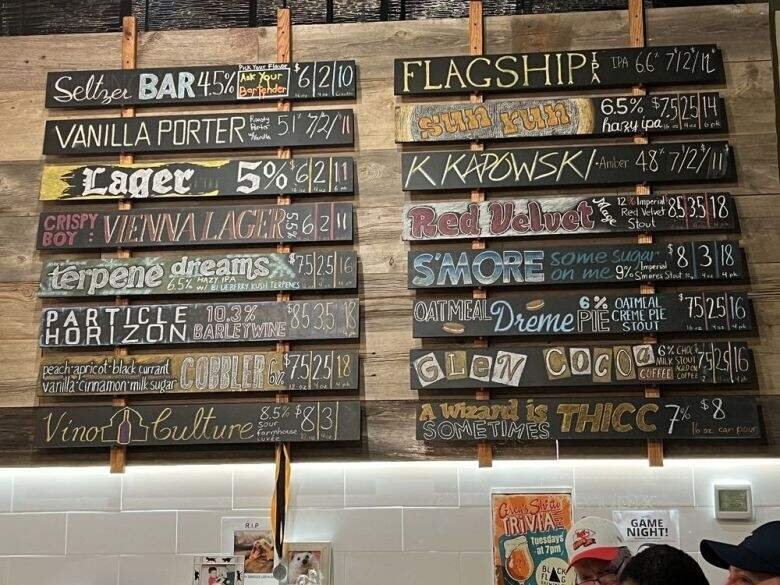 Seltzer BAR 4.5% Pick Your Flavor Ask Your Bartender $6|2|10
VANILLA PORTER Roasty Porter w/ Vanilla 5.1 7/2/11
Lager 5% $6|2|11
CRISPY BOY: VIENNA LAGER 5.5% 6|2|11
terpene dreams $7.5|2.5|16
6.5% HAZY IPA w/ BLUEBERRY KUSH TERPENES
PARTICLE HORIZON 10.3% BARLEYWINE $8.5|3.5|18
peach·apricot·black currant
vanilla·cinnamon·milk sugar COBBLER 6% $7.5|2.5|18
Vino Culture 8.5% sour farmhouse $8|3
FLAGSHIP! IPA IPA 6.6 7/2/12
sun run 6.5% hazy ipa $7.5|2.5|14
K KAPOWSKI · Amber 4.8 7/2/11
Red Velvet Mage 12% Imperial Red Velvet Stout 8.5|3.5|18
S'MORE some sugar on me 9% Imperial S'mores Stout $8|3|18
OATMEAL Dreme PIE 6% OATMEAL CREME PIE STOUT $7.5|2.5|16
GLEN COCO COFFEE 6% CHOC MILK STOUT AGED ON COFFEE 7.5|2.5|16
A WIZARD IS SOMETIMES THICC 7% $8
16 oz can pour
R.I.P
Green Street
TRIVIA
Tuesdays
at 7pm
GAME
NIGHT!